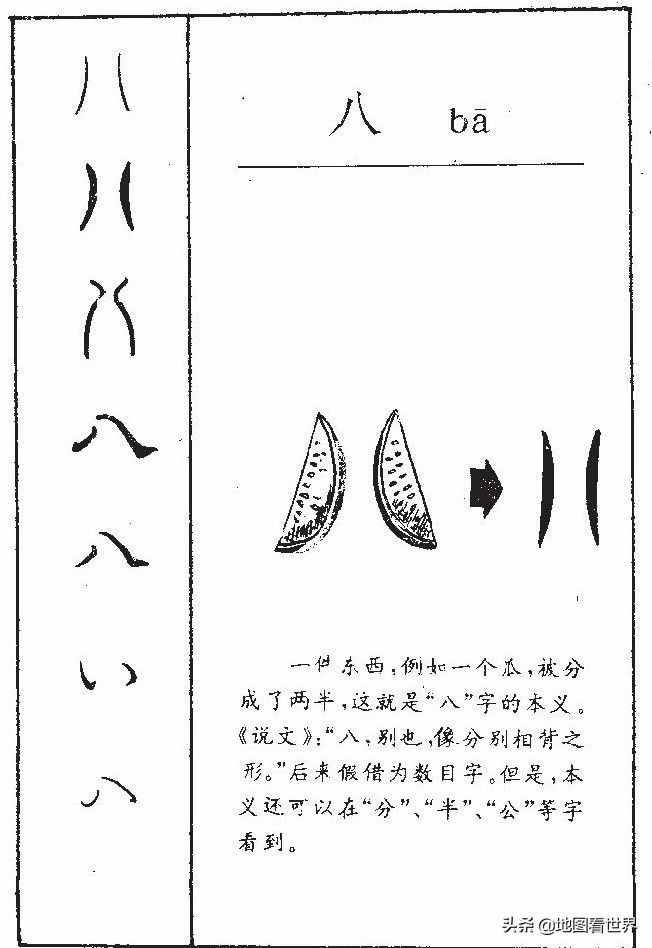 八 bā
一件东西，例如一个瓜，被分
成了两半，这就是“八”字的本义。
《说文》：“八，别也，像分别相背之
形。”后来假借为数目字。但是，本
义还可以在“分”、“半”、“公”等字
看到。
头条 @地图看世界